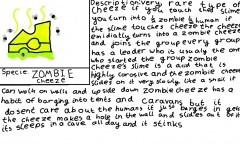 Description: very rare type of
cheeze if you touch this slime
you turn into a zombie if human
the slime touches cheeze the cheeze
turns into a zombie cheeze
and joins the group every group
has a leader who is usually the one
who started the group zombie
cheeze's slime is a acid that is
highly corosive and the zombie cheeze
slides on it very slowly like a snail it
Specie: ZOMBIE
cheeze
Can walk on walls and up side down zombie cheeze has a
habit of barging into tents and Caravans but it
dosent care about the humans if it barges in gets
the cheeze makes a hole in the wall and slides out of it
its sleeps in a cave all day and it stinks